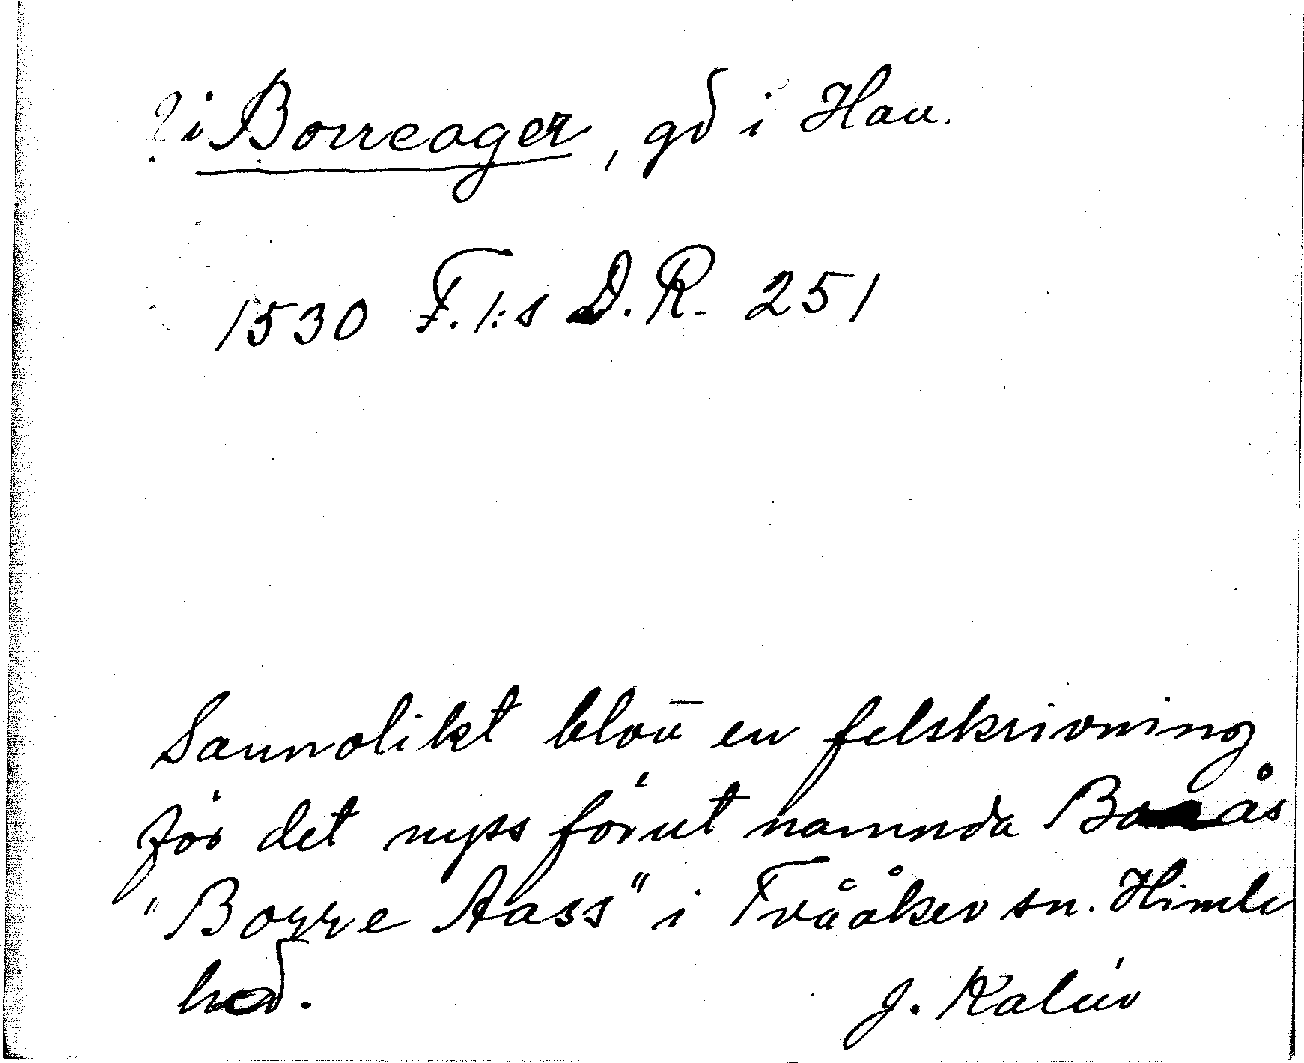 ? i Borreager, gd i Hau.
1530 F. I:s D. R. 251
Sannolikt blott en felskrivning
för det nyss förut nämnda Boås
"Borre Aass" i Tvååker sn. Himle
hd.
J. Kalén